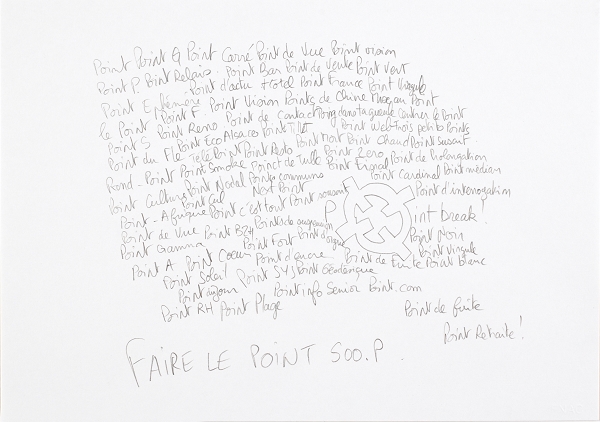 Point Point G Point Carré Point de Vue Point vision
Point P. Point Relais. Point Bar Point de Vente Point Vert
Point Ephémère. Point d'actu Hotel Point France Point Virgule
Le Point Point F. Point Vision Points de Chine Morgan Point
Point S Point Reno Point de Contact Poing dans ta gueule Center le Point
Point Eco Alsaces Point Tilt Point Web Trois petits Points
Point du Fle Télé Point Point Resto Point Mort Point Chaud Point Suscuit.
Rond-Point Point Smoke Point de Tulle Point Zero Point de Prolongation
Point Culture Point Nodal Points communs Point Cardinal Point médian
Point Gel Next Point Point d'interrogation
Point-Afrique Point c'est tout Point P int break.
Point de Vue Point B2H Points de suspension Point Noir
Point Gamma Point Fort Point d'orgue Point Virgule
Point A Point Coeur Point d'ancre Point de fuite Point blanc
Point Soleil Point SYS Point Géodésique
Point du jour Point info Senior Point.com
Point RH Point Plage Point de fuite
Point Retraite!
FAIRE LE POINT 500.P.